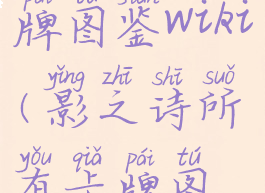 牌图鉴wiki
yǐng zhī shī suǒ
(影之诗所
yǒu qiǎ pái tú
有卡牌图